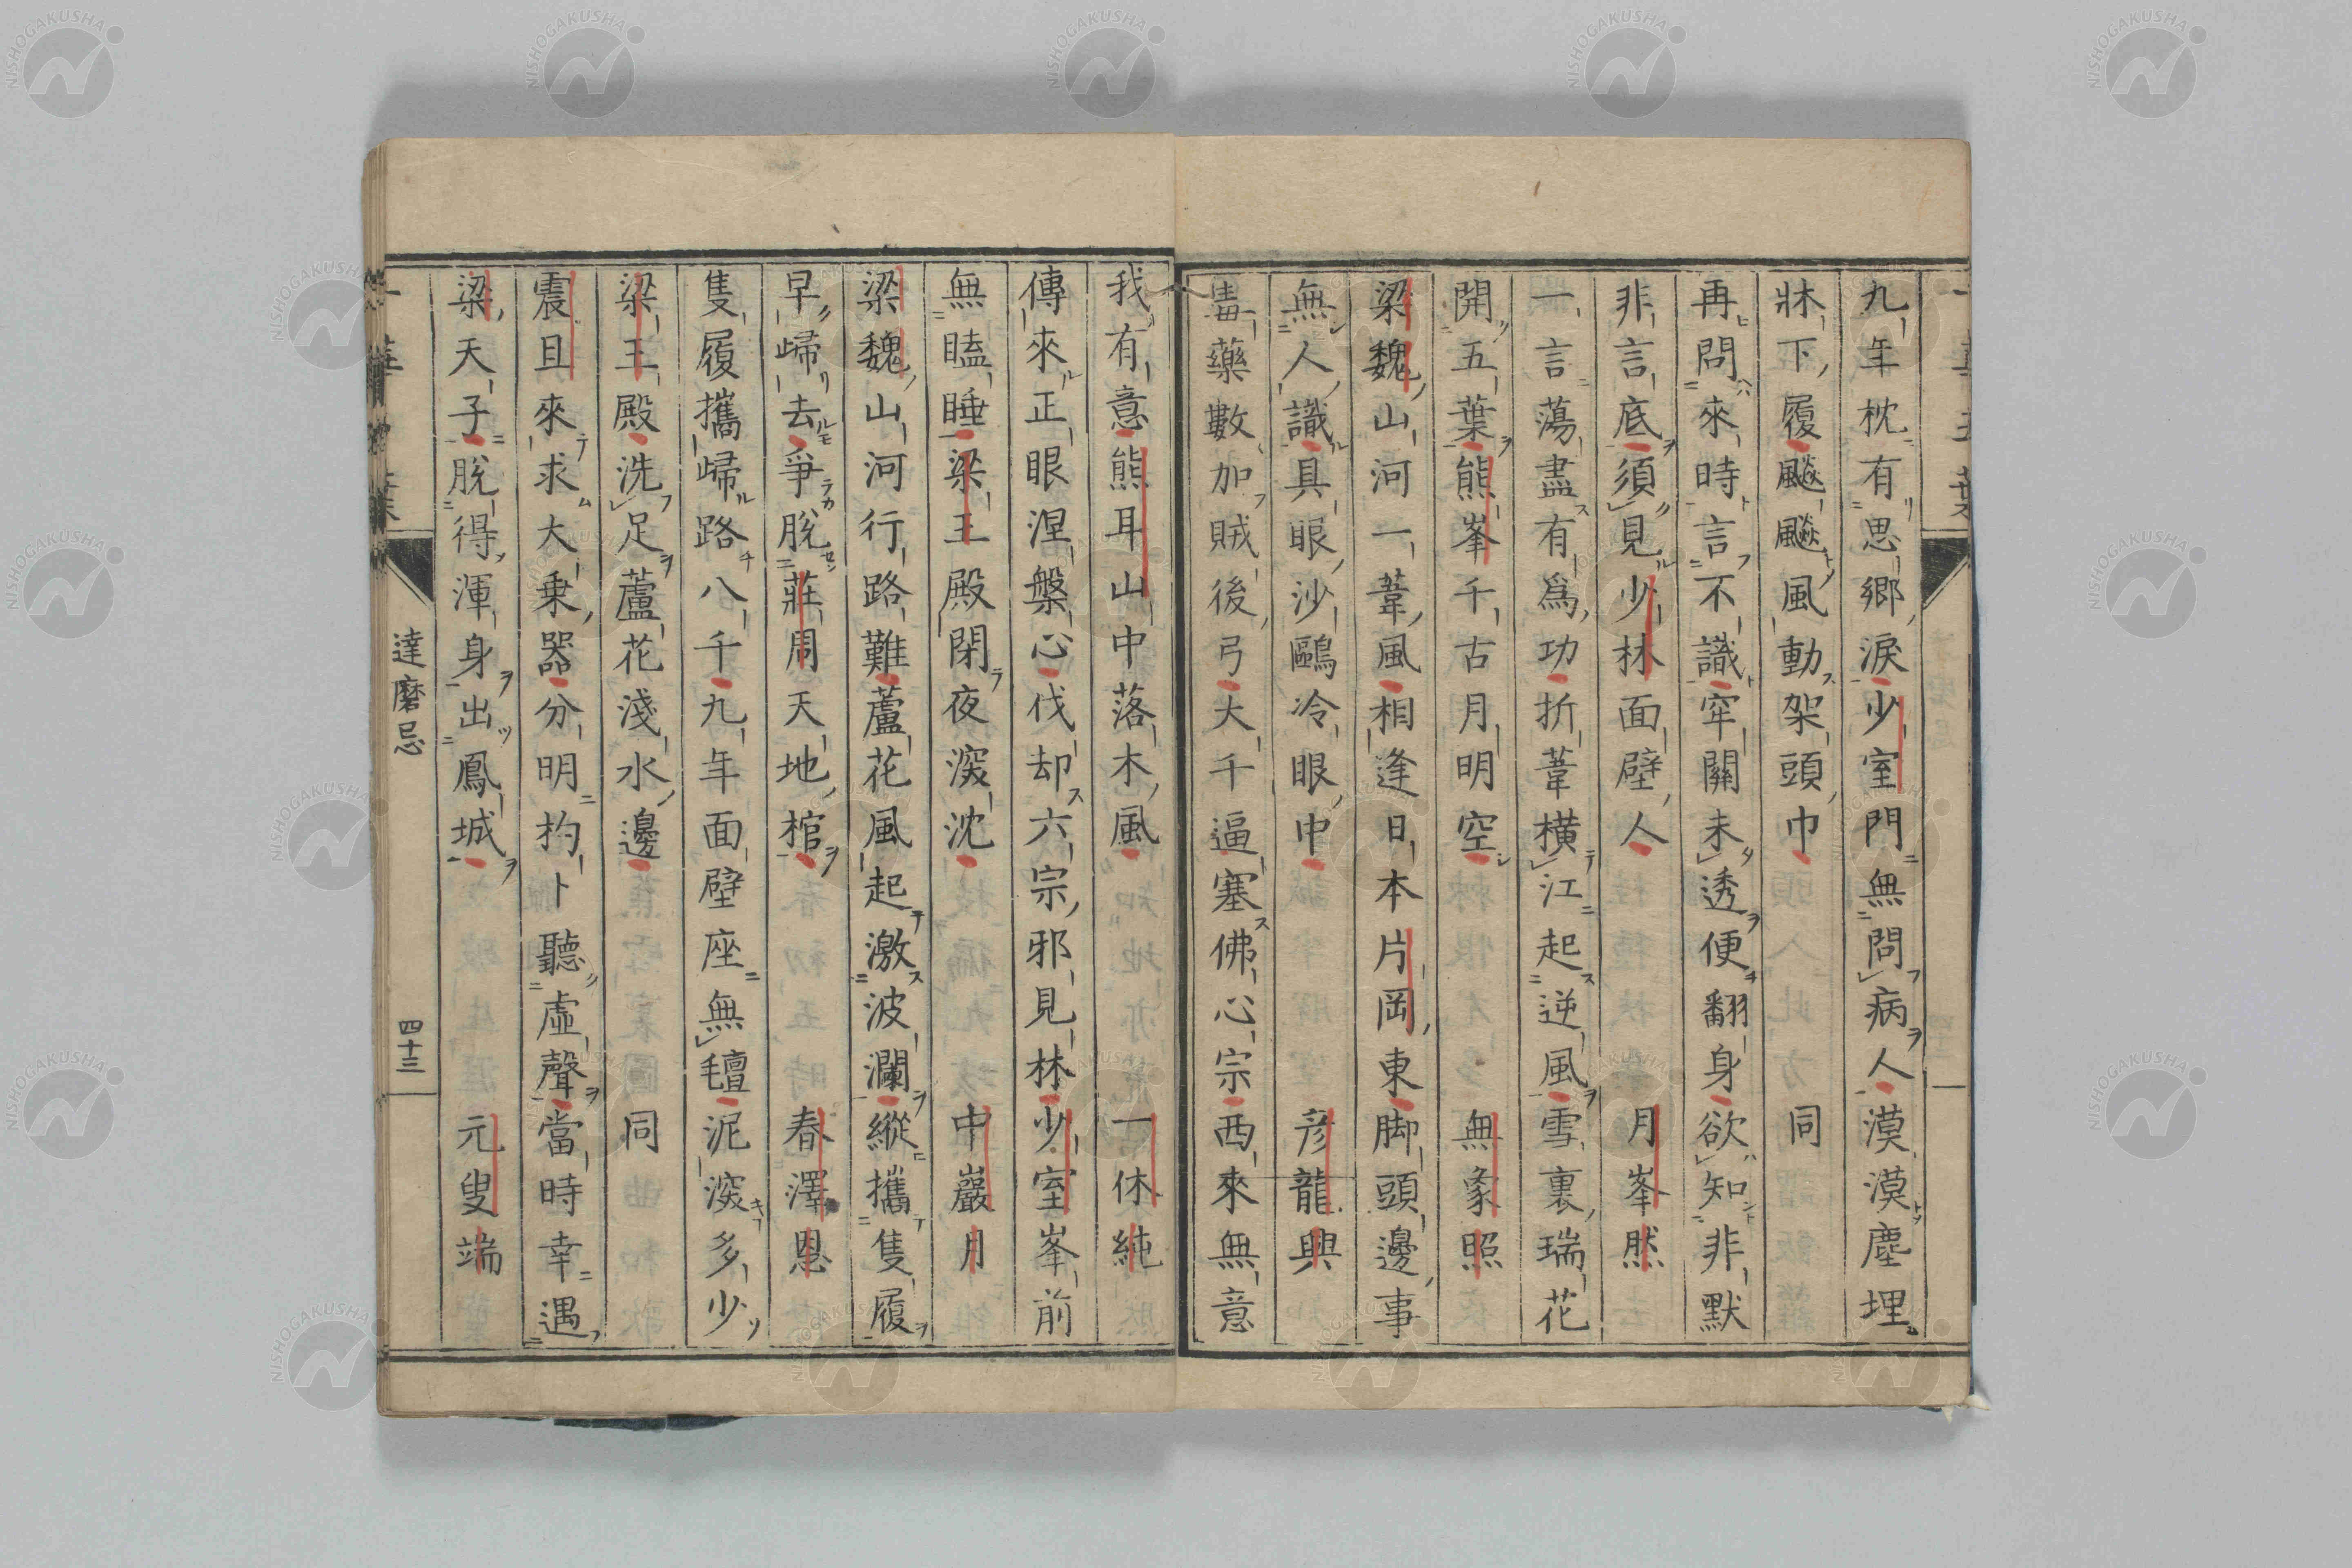 九年枕有思郷淚少室門無問病人漠漠塵埋
牀下履颷颷風動架頭巾同
再問來時言不識牢關未透便翻身欲知非默
非言底須見少林面壁人月峯㷊
一言蕩盡有爲功折葦橫江起逆風雪裏瑞花
開五葉熊峯千古月明空無象照
梁魏山河一葦風相逢日本片岡東脚頭邊事
無人識具眼沙鷗冷眼中彦龍興
毒藥數加賊後弓大千逼塞佛心宗西來無意
我有意熊耳山中落木風一休純
傳來正眼涅槃心伐却六宗邪見林少室峯前
無瞌睡梁王殿閉夜深沈中巖月
梁魏山河行路難蘆花風起激波瀾縱攜隻履
早歸去爭脫莊周天地棺春澤恩
隻履攜歸路八千九年面壁座無氊泥深多少
梁王殿洗足蘆花淺水邊同
震旦來求大乗器分明杓卜聽虛聲當時幸遇
梁天子脫得渾身出鳳城元叟端
達磨忌
四十三
NISHOGAKUSHA